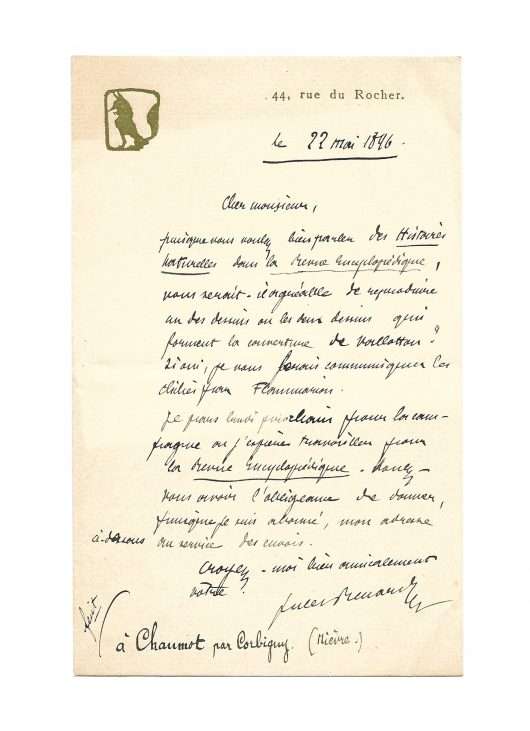 44, rue du Rocher.
le 22 mai 1896.
Cher monsieur,
puisque vous voulez bien parler des Histoires
naturelles dans la Revue Encyclopédique,
vous serait-il agréable de reproduire
un des dessins ou les deux dessins qui
forment la couverture de Vallotton?
Si oui, je vous ferais communiquer les
clichés par Flammarion.
Je pars lundi prochain pour la cam-
pagne où j'espère travailler pour
la Revue Encyclopédique. Voulez-
vous avoir l'obligeance de donner,
puisque je suis abonné, mon adresse
à-dessous au service des envois.
Croyez-moi bien amicalement
votre
Jules Renard
fait
à Chaumot par Corbigny. (Nièvre.)